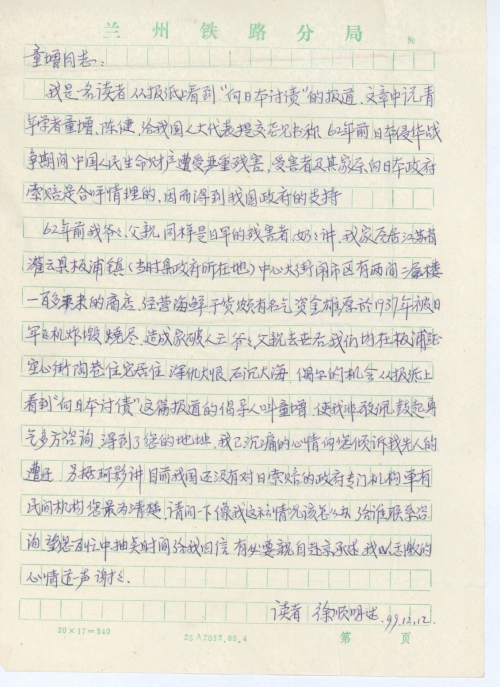 兰州铁路分局
№
童增同志:
我是名读者从报纸上看到"向日本讨债"的报道,文章中说青
年学者童增、陈健,给我国人大代表提交 称62年前日本侵华战
争期间中国人民生命财产遭受严重残害,受害者及其家属向日本政府
索赔是合乎情理的,因而得到我国政府的支持
62年前我爷爷父亲同样是日军的残害者,奶奶讲,我家居住江苏省
灌云县板浦镇(当时县政府所在地)中心大街闹市区有两间二层楼
一百多平米的商店,经营海鲜干货颇有名气资金雄厚於1937年被日
军飞机炸毁烧尽,造成家破人亡爷爷父亲去世后我们均在板浦
空心街陶巷住宅居住,深仇大恨,石沉大海,偶尔的机会从报纸上
看到"向日本讨债"这篇报道的倡导人叫童增,使我非敬佩鼓起勇
气多方咨询,得到了您的地址,我已沉痛的心情向您倾诉我先人的
遭 另据 讲目前我国还没有对日索赔的政府专门机构单有
民间机构您最为清楚,请问一下像我这种情况该怎么办给谁联系咨
询望您百忙中抽点时间给我回信,有必要亲自赴京承述,我以 的
心情道声谢谢.
读者 徐顺 99.12.12.
20×17=340
25A2032.88.4
第 页